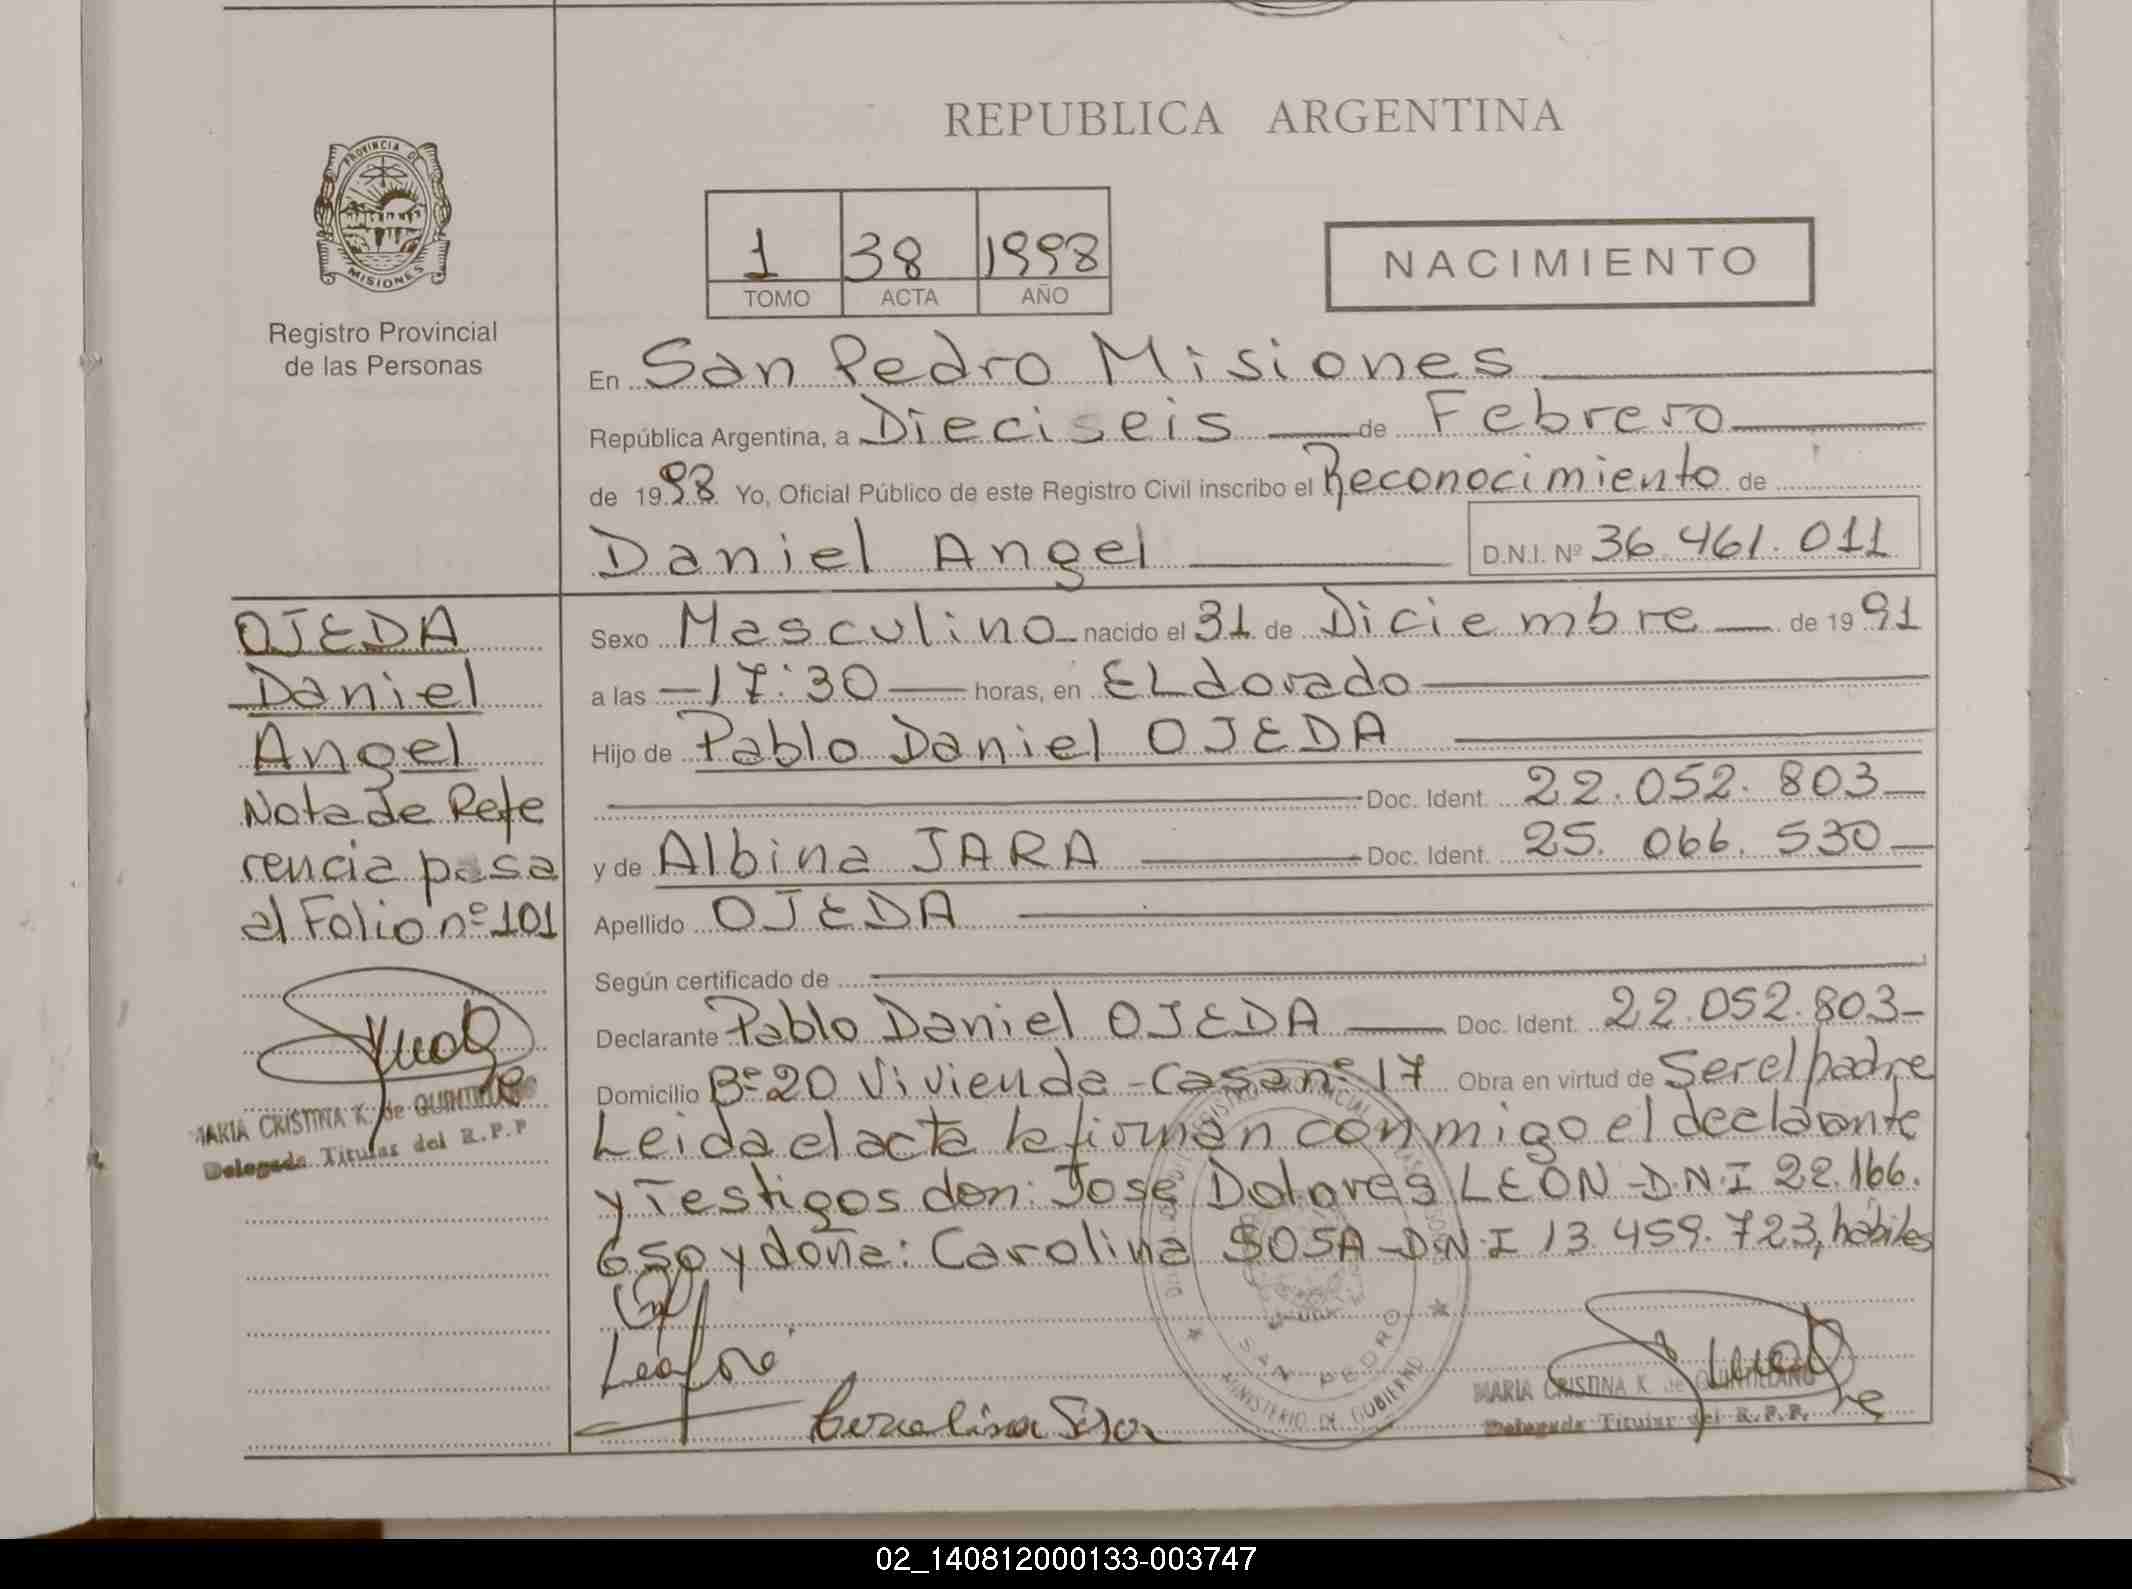 REPUBLICA ARGENTINA
PROVINCIA DE MISIONES
Registro Provincial
de las Personas
1 38 1998
TOMO ACTA AÑO
NACIMIENTO
En San Pedro Misiones
República Argentina, a Dieciseis de Febrero
de 1998. Yo, Oficial Público de este Registro Civil inscribo el Reconocimiento de
Daniel Angel D.N.I. Nº 36.461.011
OJEDA
Daniel
Angel
Nota de Refe
rencia pasa
al Folio nº 101
MARIA CRISTINA K. de QUINTILLANO
Delegada Titular del R.P.P
Sexo Masculino nacido el 31 de Diciembre de 1991
a las 17:30 horas, en ELdorado
Hijo de Pablo Daniel OJEDA
Doc. Ident. 22.052.803
y de Albina JARA Doc. Ident. 25.066.530
Apellido OJEDA
Según certificado de
Declarante Pablo Daniel OJEDA Doc. Ident. 22.052.803
Domicilio Bº 20 Vivienda - Casa nº 17 Obra en virtud de Ser el padre
Leida el acta la firman conmigo el declarante
y Testigos don: José Dolores LEON - D.N.I 22.166.
650 y doña: Carolina SOSA - D.N.I 13.459.723, hábiles
Carolina Sosa
SAN PEDRO
MINISTERIO DE GOBIERNO
MARIA CRISTINA K. de QUINTILLANO
Delegada Titular del R.P.P.
02_140812000133-003747